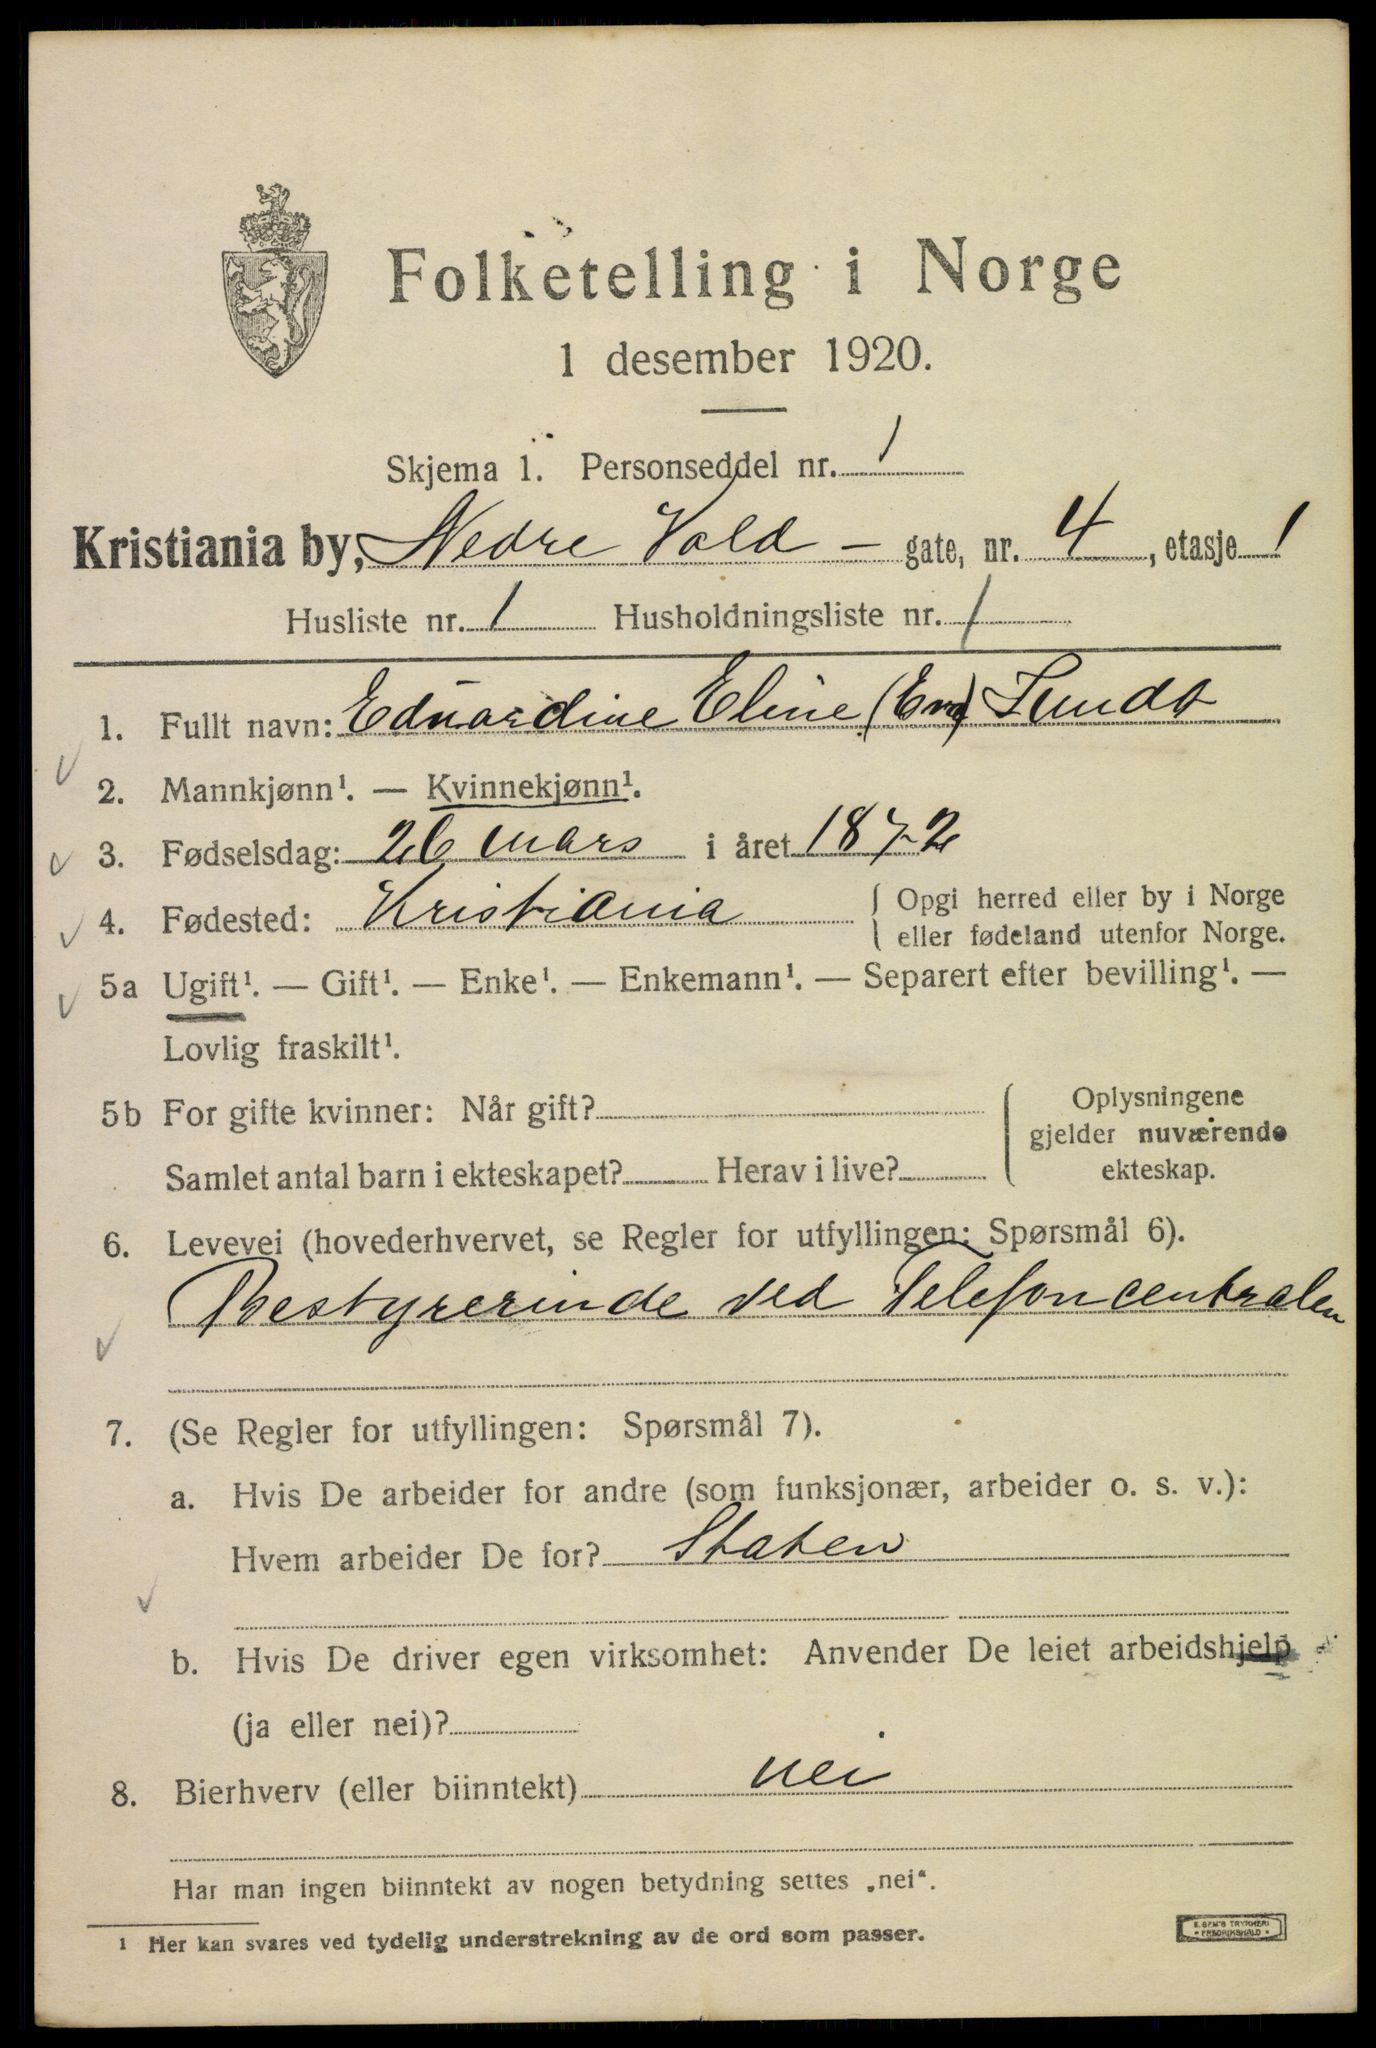 Folketelling i Norge
1 desember 1920.
Skjema 1. Personseddel nr. 1
Kristiania by, Nedre Vold - gate, nr. 4, etasje 1
Husliste nr. 1 Husholdningsliste nr. 1
1. Fullt navn: Eduardine Eline (Em) Sundt
2. Mannkjønn¹. — Kvinnekjønn¹.
3. Fødselsdag: 26 mars i året 1872
4. Fødested: Kristiania { Opgi herred eller by i Norge
eller fødeland utenfor Norge.
5a Ugift¹. — Gift¹. — Enke¹. — Enkemann¹. — Separert efter bevilling¹. —
Lovlig fraskilt¹.
5b For gifte kvinner: Når gift? { Oplysningene
gjelder nuværende
Samlet antal barn i ekteskapet? Herav i live? ekteskap.
6. Levevei (hovederhvervet, se Regler for utfyllingen: Spørsmål 6).
Bestyrerinde ved Telefoncentralen
7. (Se Regler for utfyllingen: Spørsmål 7).
a. Hvis De arbeider for andre (som funksjonær, arbeider o. s. v.):
Hvem arbeider De for? Staten
b. Hvis De driver egen virksomhet: Anvender De leiet arbeidshjelp
(ja eller nei)?
8. Bierhverv (eller biinntekt) nei
Har man ingen biinntekt av nogen betydning settes „nei“.
1 Her kan svares ved tydelig understrekning av de ord som passer.
E. SEM'S TRYKKERI
FREDRIKSHALD